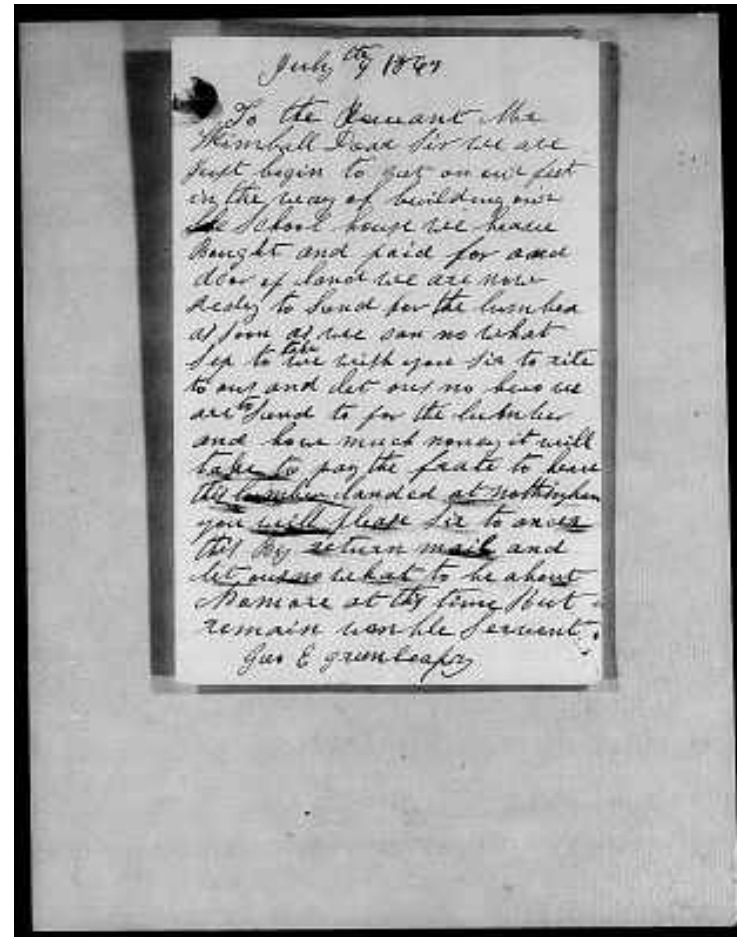 July th 9 1867
To the Mr
Kimball Dear Sir we are
Just begin to get on our feet
in the way of building our
School house we heave
Bought and paid for and
of land we are now
Redy to Send for the lumber
as soon as we can no what
Sep to take we wish you Sir to rite
to ous and let ous no how we
are to Send to for the lumber
and how much money it will
take to pay the frate to heave
the lumber landed at nottingham
you will please Sir to ancer
this By return mail and
let ous no what to be about
Nomore at this time But
remain Servent
Geo E